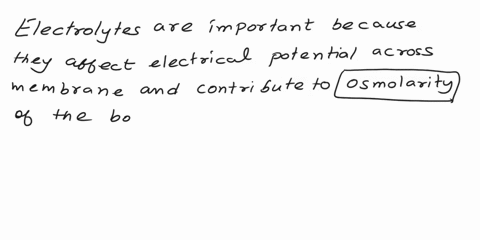 Electrolytes are important because
they affect electrical potential across
membrane and contribute to osmolarity
of the bo